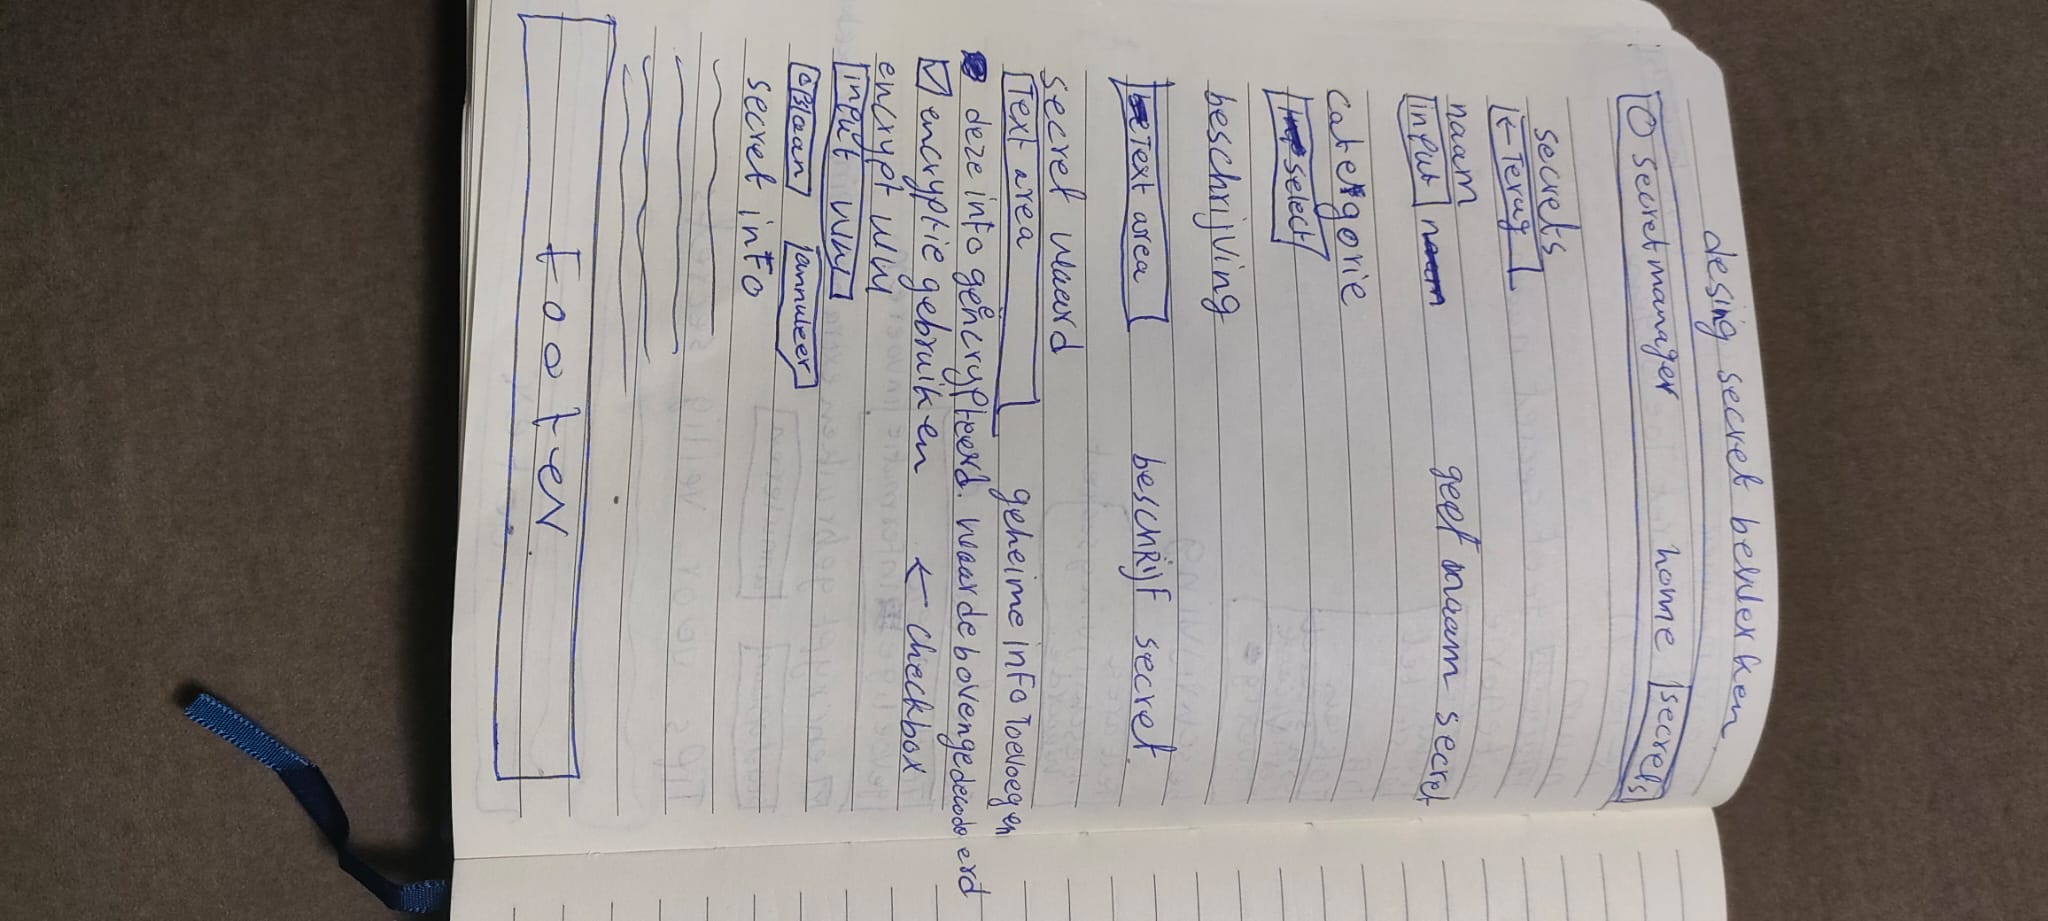 desing secret bewerken
O secret manager home secrets
secrets
← Terug
naam
input geef naam secret
categorie
select
beschrijving
Text area beschrijf secret
secret waard
Text area geheime info Toevoegen
deze info geëncrypteerd. waarde boven gedecodeerd
☑ encryptie gebruiken ← checkbox
encrypt ww
input ww
opslaan annuleer
secret info
Footer